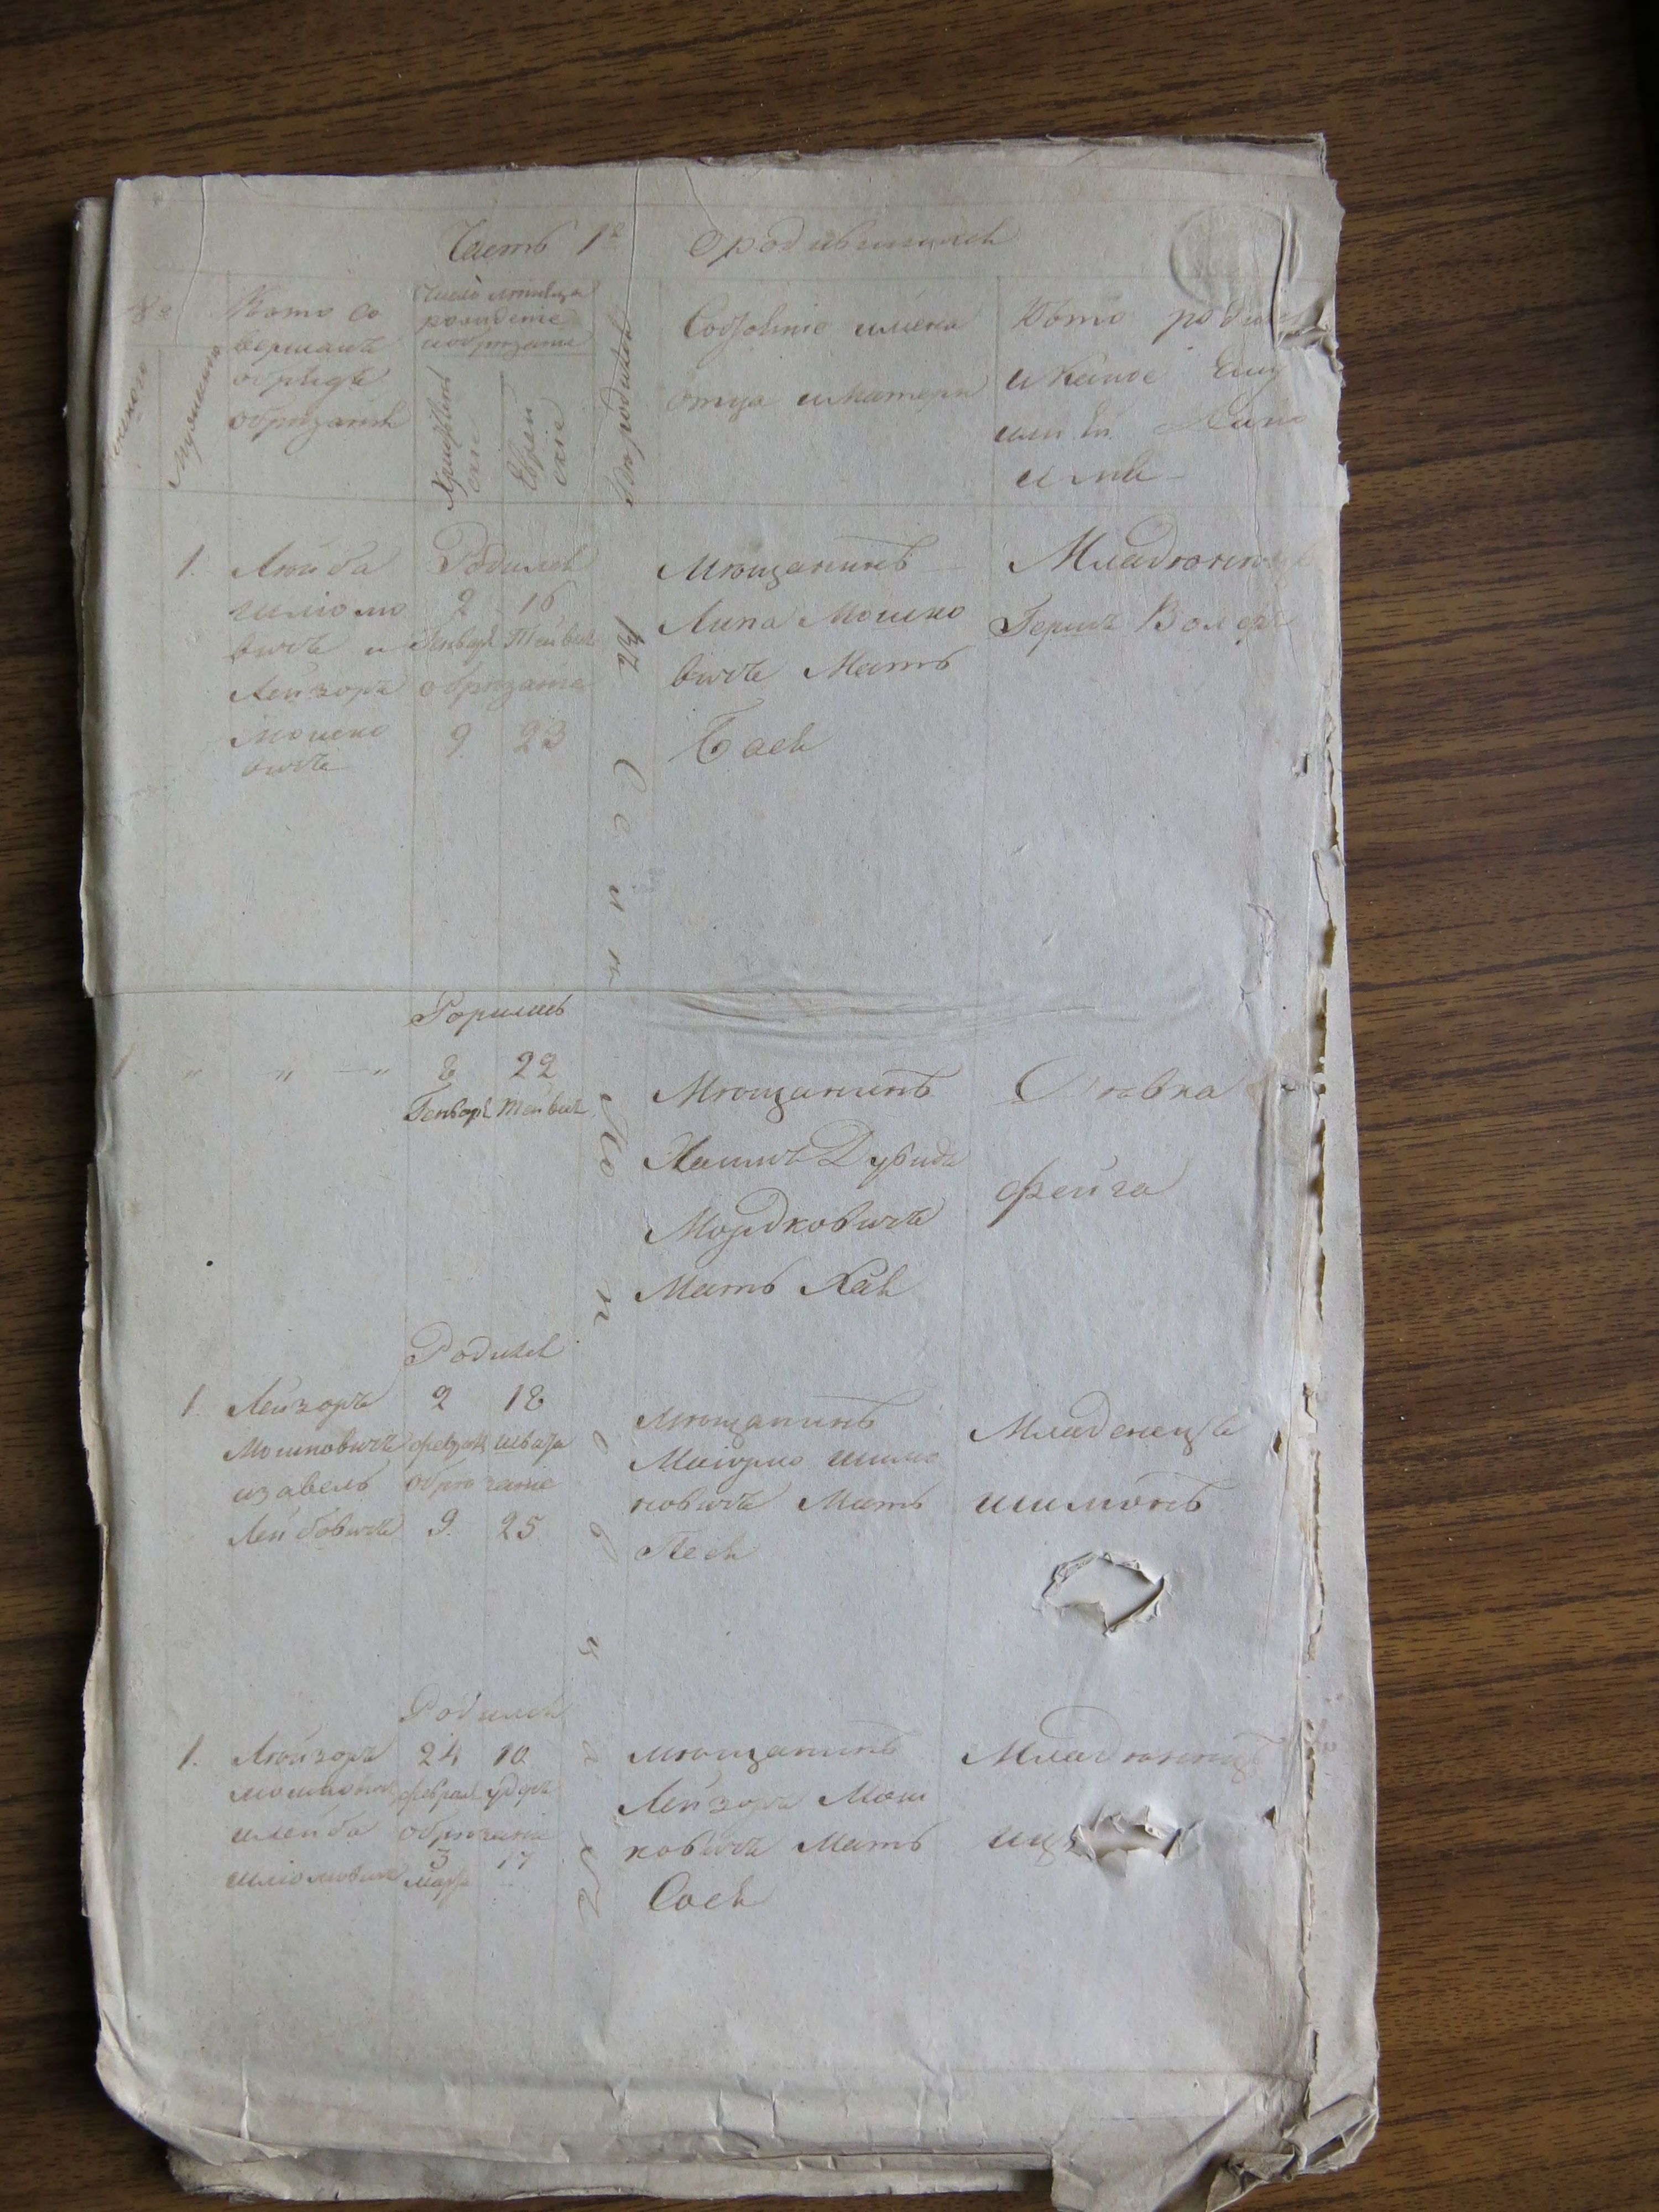 Часть 1я О родившихся
№
женского
мужескаго
Кто со
вершалъ
обрядъ
обрезанія
Число и мѣсяцъ
рождение
и обрезание
Христіян
скіе
Еврей
скіе
Где родился
Состояніе имена
отца и матери
Кто родился
и какое Ему
или Ей Дано
имя
1. Лейба
Шліомо
вичъ и
Лейзоръ
Мошко
вичъ
Родился
2 16
Генваря Тейвисъ
обрезание
9 23
Мѣщанинъ
Липа Мошко
вичъ Мать
Бася
Младѣнецъ
Гершъ Волфъ
Родилась
8 22
Генваря Тейвисъ
Мѣщанинъ
Хаимъ Дувидъ
Мордковичъ
Мать Хая
Дѣвка
Фейга
1. Лейзоръ
Мошковичъ
Лейбовичъ
Родился
2 18
февраля Шваха
обрѣзаніе
9. 25
Мѣщанинъ
ковичъ Мать
Песя
Младенецъ
Шимонъ
1. Лѣйзоръ
Мошкович
и Лейба
Шліомович
Родился
24 10
февраля Удеръ
обрѣзаніе
3 17
марта
Мѣщанинъ
Лейзоръ Мош
ковичъ Мать
Сося
Младѣнецъ
Иц